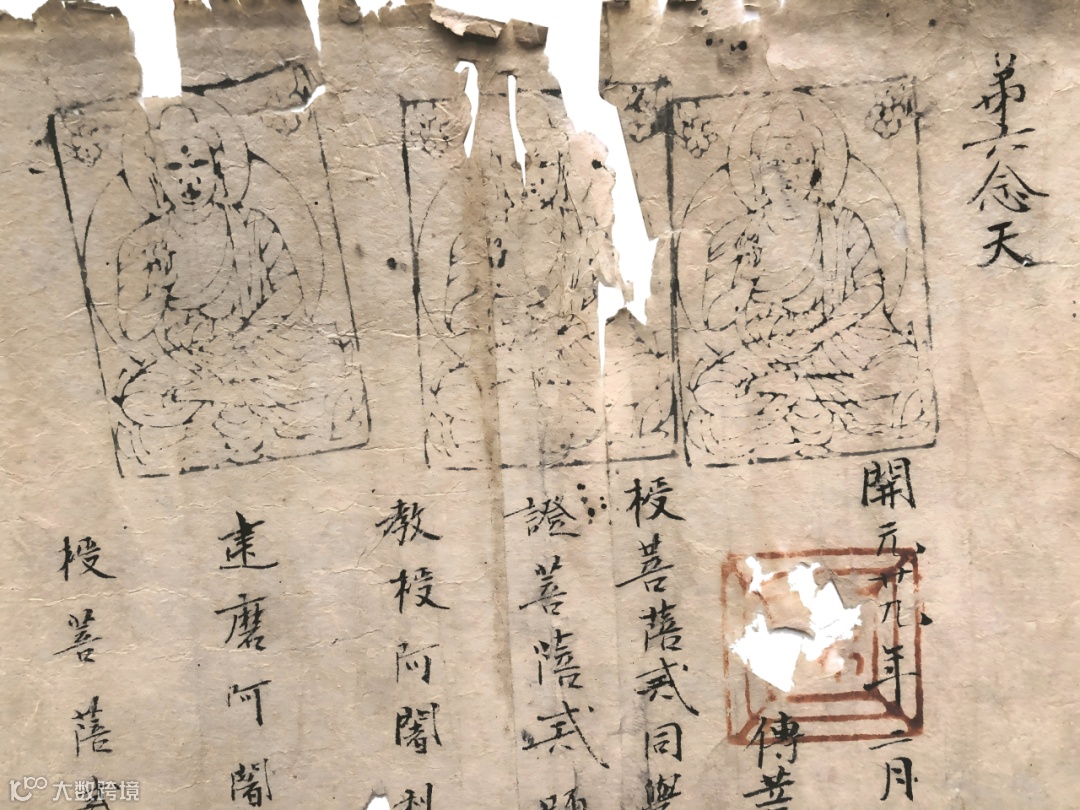 弟六念天
開元廿九年二月
傳菩
授菩薩戒同學
證菩薩戒師
教授阿闍利
建磨阿闍
授菩薩
大数跨境